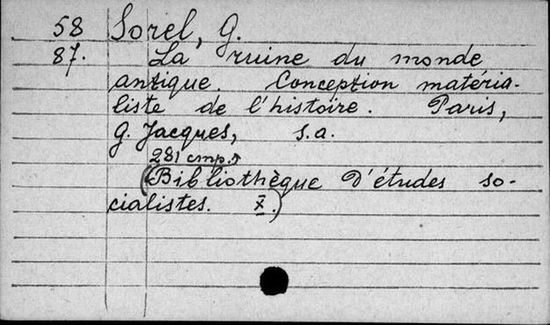 58 Sorel, G.
87. La ruine du monde
antique. Conception matéria-
liste de l'histoire. Paris,
G. Jacques, s.a.
281 cmp.
(Bibliothèque D'études so-
cialistes. X.)